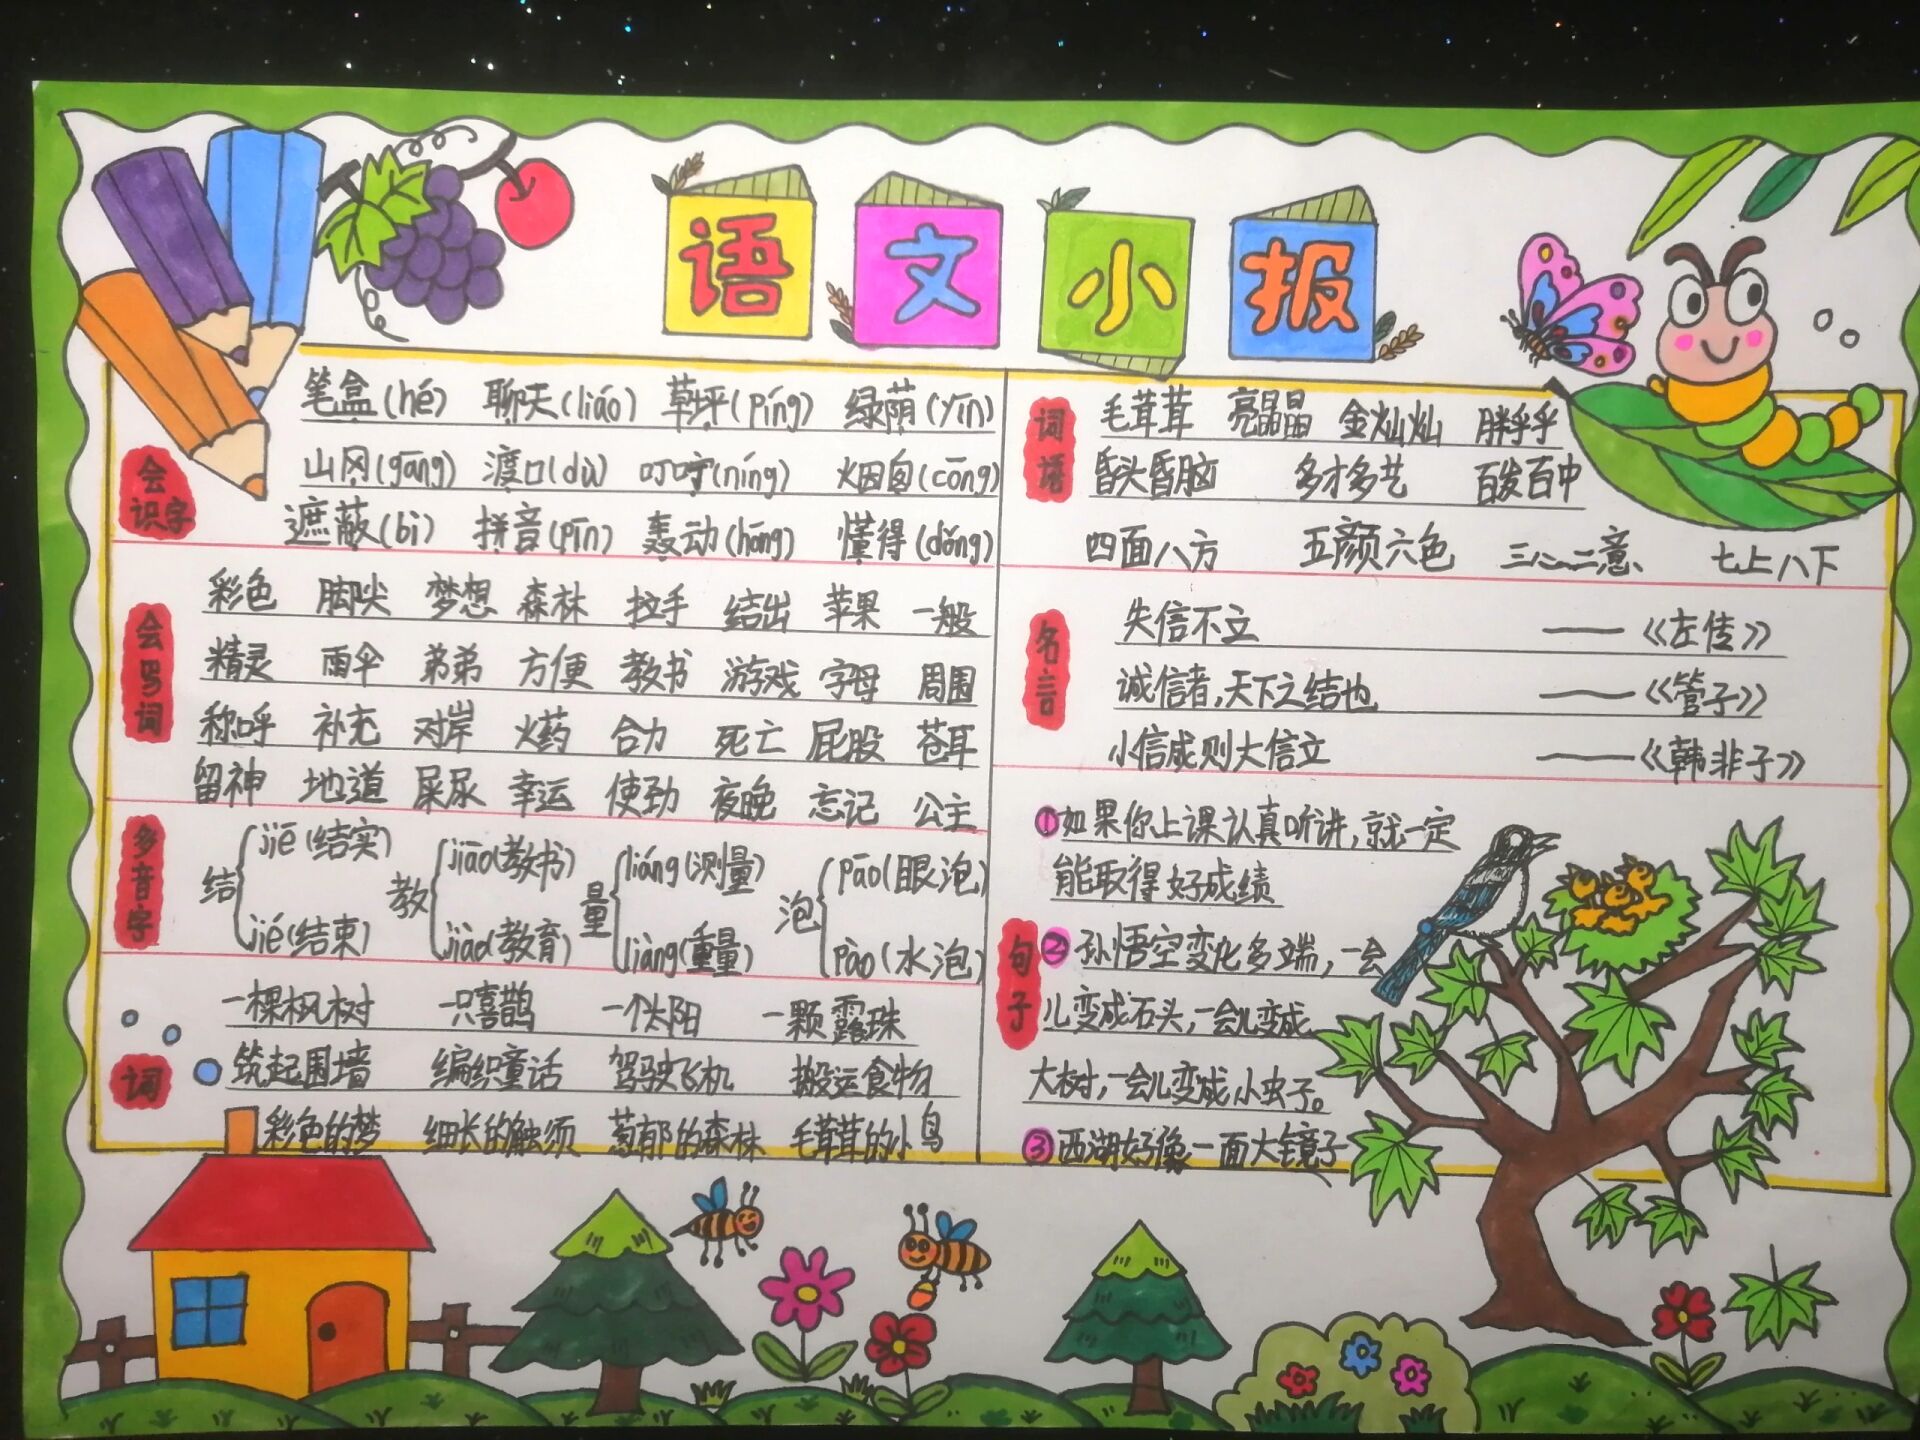 语文小报
会识字
笔盒(hé) 聊天(liáo) 草坪(píng) 绿荫(yīn)
山冈(gāng) 渡口(dù) 叮咛(níng) 烟囱(cōng)
遮蔽(bì) 拼音(pīn) 轰动(hōng) 懂得(dǒng)
会写词
彩色 脚尖 梦想 森林 拉手 结出 苹果 一般
精灵 雨伞 弟弟 方便 教书 游戏 字母 周围
称呼 补充 对岸 火药 合力 死亡 屁股 苍耳
留神 地道 屎尿 幸运 使劲 夜晚 忘记 公主
多音字
结 jiē(结实) 教 jiāo(教书) 量 liáng(测量) 泡 pāo(眼泡)
jié(结束) jiào(教育) liàng(重量) pào(水泡)
词
一棵枫树 一只喜鹊 一个太阳 一颗露珠
筑起围墙 编织童话 驾驶飞机 搬运食物
彩色的梦 细长的触须 葱郁的森林 毛茸茸的小鸟
词语
毛茸茸 亮晶晶 金灿灿 胖乎乎
昏头昏脑 多才多艺 百发百中
四面八方 五颜六色 三心二意 七上八下
名言
失信不立 ——《左传》
诚信者,天下之结也 ——《管子》
小信成则大信立 ——《韩非子》
句子
①如果你上课认真听讲,就一定
能取得好成绩
②孙悟空变化多端,一会
儿变成石头,一会儿变成
大树,一会儿变成小虫子。
③西湖好像一面大镜子